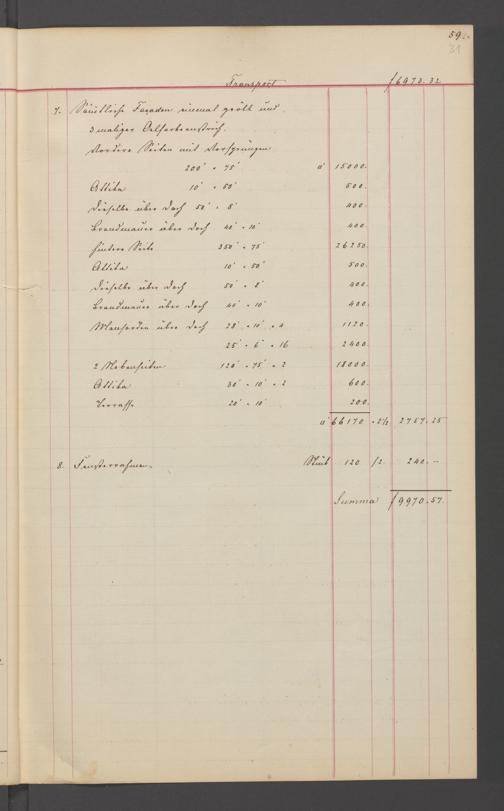 59.
31
Transport f 6973.32
7. Sämtliche Façaden einmal geölt und
3 maliger Oelfarbenstrich.
Vordere Seiten mit Vorsprüngen
200' × 75' a' 15000.
Attika 10' × 50' 500.
Dieselbe über Dach 50' × 8' 400.
Brandmauer über Dach 40' × 10' 400.
Hintere Seite 350' × 75' 26250.
Attika 10' × 50' 500.
Dieselbe über Dach 50' × 8' 400.
Brandmauer über Dach 40' × 10' 400.
Mansarden über Dach 28' × 10' × 4 1120.
25' × 6' × 16 2400.
2 Nebenseiten 120' × 75' × 2 18000.
Attika 30' × 10' × 2 600.
Terrasse 20' × 10' 200.
a' 66170 × 2½ 2757.25
8. Fensterrahmen. Stück 120 f2. 240.--
Summa f 9970.57.